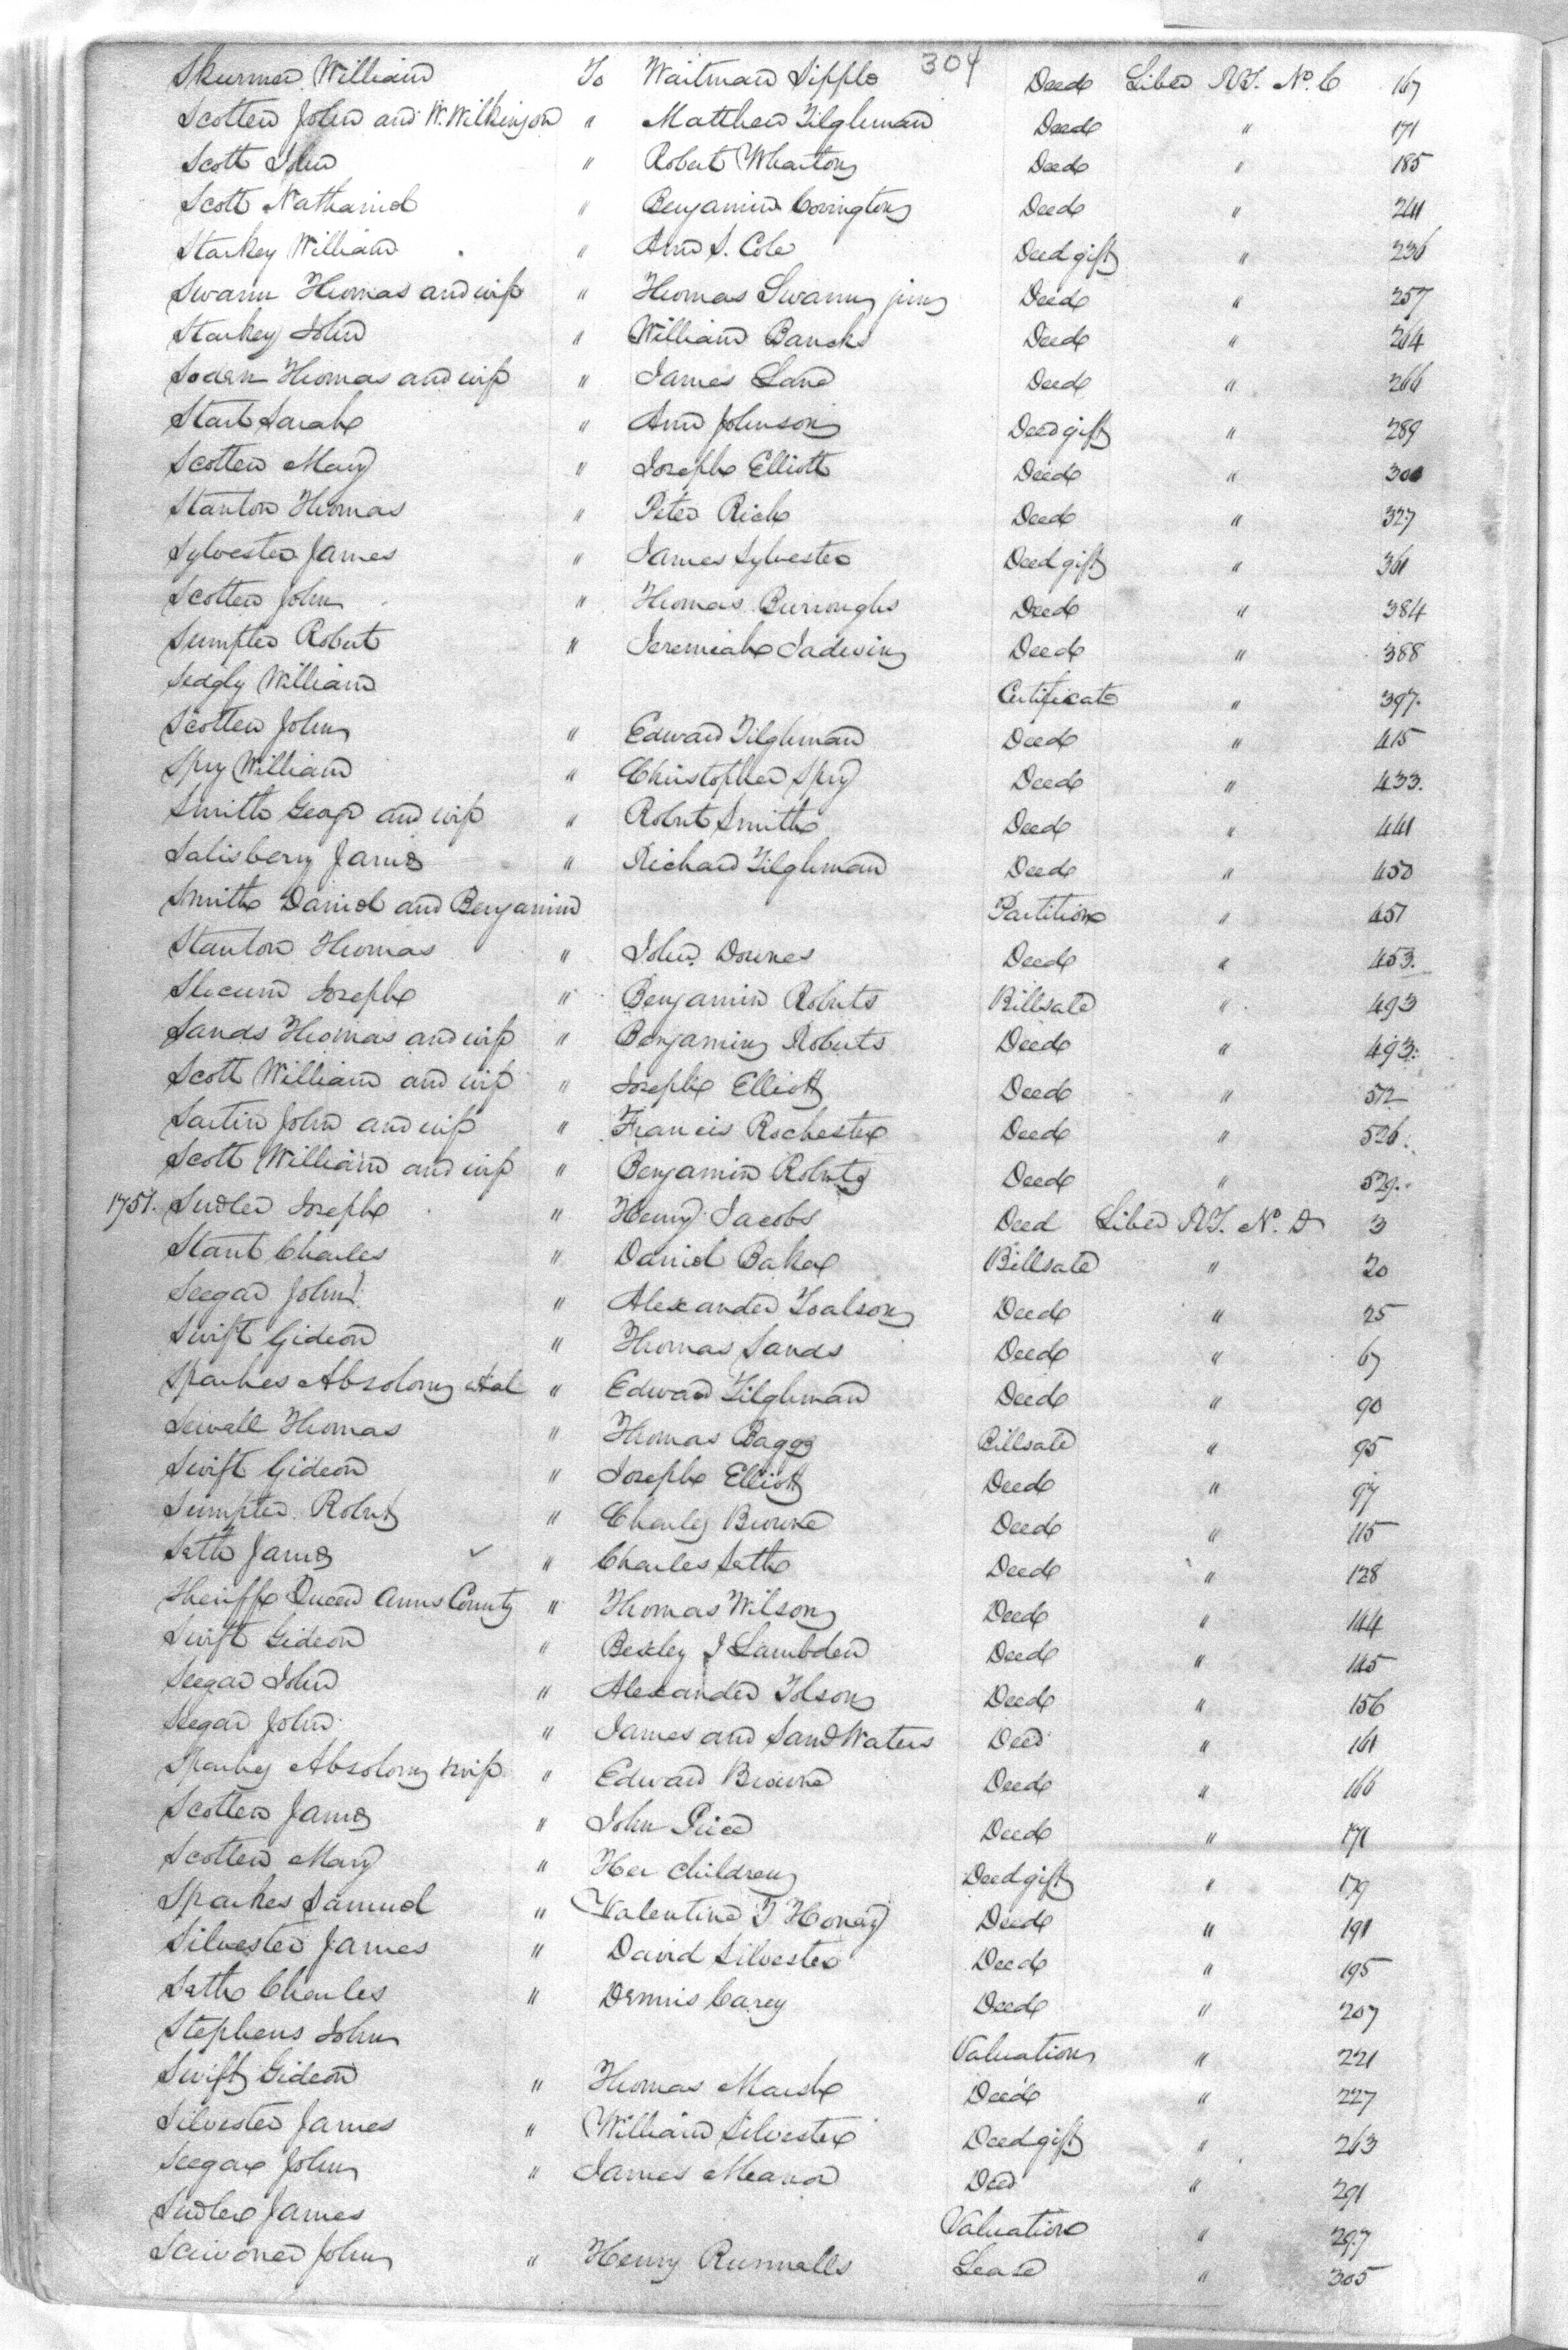 304
Skurmer William To Waitman Sipple Deed Liber RT. No. C 167
Scotten John and W. Wilkinson " Matthew Tilghman Deed " 171
Scott John " Robert Wharton Deed " 185
Scott Nathaniel " Benjamin Covington Deed " 241
Starkey William " Ann S. Cole Deed gift " 236
Swann Thomas and wife " Thomas Swann junr Deed " 257
Starkey John " William Banck Deed " 264
Soden Thomas and wife " James Lane Deed " 266
Start Sarah " Ann Johnson Deed gift " 289
Scotten Mary " Joseph Elliott Deed " 300
Stanton Thomas " Peter Rich Deed " 327
Sylvester James " James Sylvester Deed gift " 361
Scotten John " Thomas Burroughs Deed " 384
Sumpter Robert " Jeremiah Jadwin Deed " 388
Sedgly William Certificate " 397.
Scotten John " Edward Tilghman Deed " 415
Spry William " Christopher Spry Deed " 433.
Smith George and wife " Robert Smith Deed " 441
Salisbery James " Richard Tilghman Deed " 450
Smith Daniel and Benjamin Partition " 451
Stanton Thomas " John Downes Deed " 453.
Slocum Joseph " Benjamin Roberts Billsale " 493
Sands Thomas and wife " Benjamin Roberts Deed " 493.
Scott William and wife " Joseph Elliott Deed " 512
Sartin John and wife " Francis Rochester Deed " 526.
Scott William and wife " Benjamin Roberts Deed " 529.
1751. Sudler Joseph " Henry Jacobs Deed Liber RT. No. D 3
Stant Charles " Daniel Baker Billsale " 20
Seegar John " Alexander Toalson Deed " 25
Swift Gideon " Thomas Sands Deed " 67
Sparkes Absolom et al " Edward Tilghman Deed " 90
Sewall Thomas " Thomas Baggs Billsale " 95
Swift Gideon " Joseph Elliott Deed " 97
Sumpter Robert " Charles Browne Deed " 115
Seth James " Charles Seth Deed " 128
Sheriffe Queen Anns County " Thomas Wilson Deed " 144
Swift Gideon " Bexley J Lambden Deed " 145
Seegar John " Alexander Tolson Deed " 156
Seegar John " James and Saml Waters Deed " 161
Sparkes Absolom & wife " Edward Browne Deed " 166
Scotten James " John Price Deed " 171
Scotten Mary " Her children Deed gift " 179
Sparkes Samuel " Valentine T Honey Deed " 191
Silvester James " David Silvester Deed " 195
Seth Charles " Dennis Carey Deed " 207
Stephens John Valuation " 221
Swift Gideon " Thomas Marsh Deed " 227
Silvester James " William Silvester Deed gift " 263
Seegar John " James Meanor Deed " 291
Sudler James Valuation " 297
Scrivener John " Henry Runnalls Lease " 305